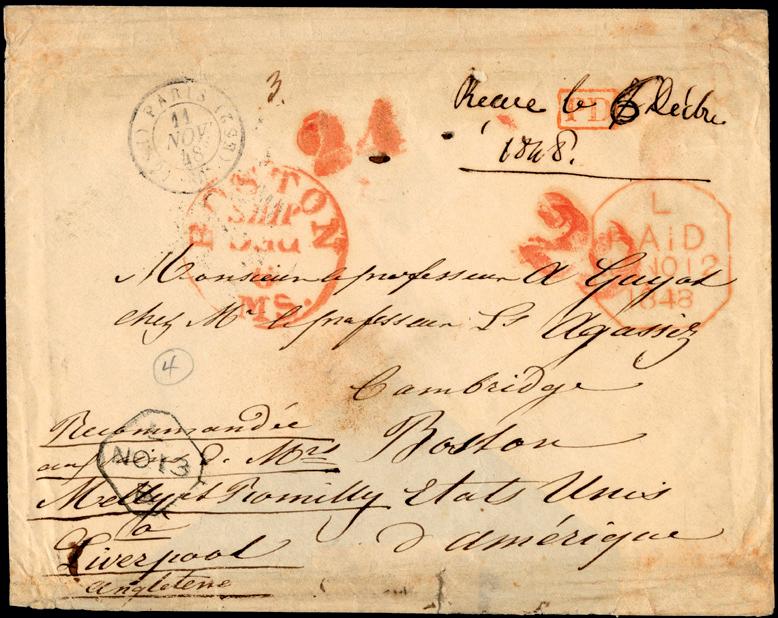 3.
24
Recue le 6 Décbre
1848.
PD
PARIS
11
NOV.
48
(60)
BOSTON
SHIP
DEC
MS.
L
PAiD
NO12
1848
Monsieur le professeur A Guyot
chez Mr le professeur Ls Agassiz
4
Cambridge
Boston
Etats Unis
d'amérique
Recommandée
aux d. Mrs
Melly et Romilly
a
Liverpool
Angleterre
L
NO13